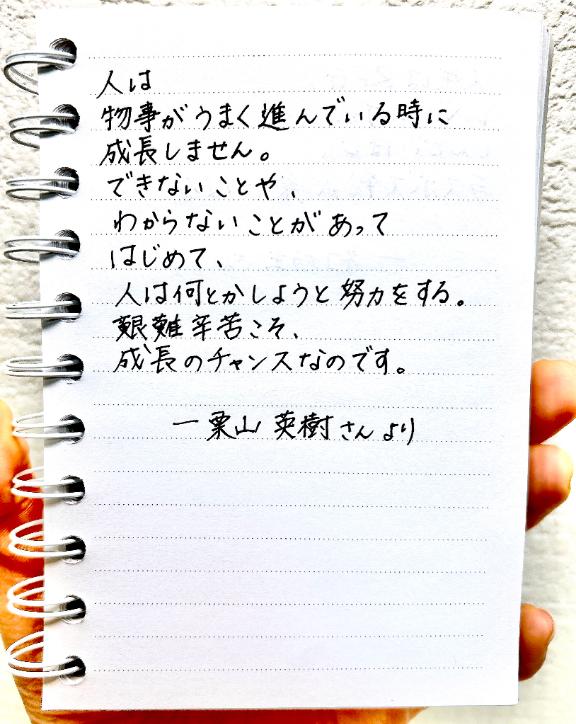 人は
物事がうまく進んでいる時に
成長しません。
できないことや、
わからないことがあって
はじめて、
人は何とかしようと努力をする。
艱難辛苦こそ、
成長のチャンスなのです。
一栗山 英樹さんより